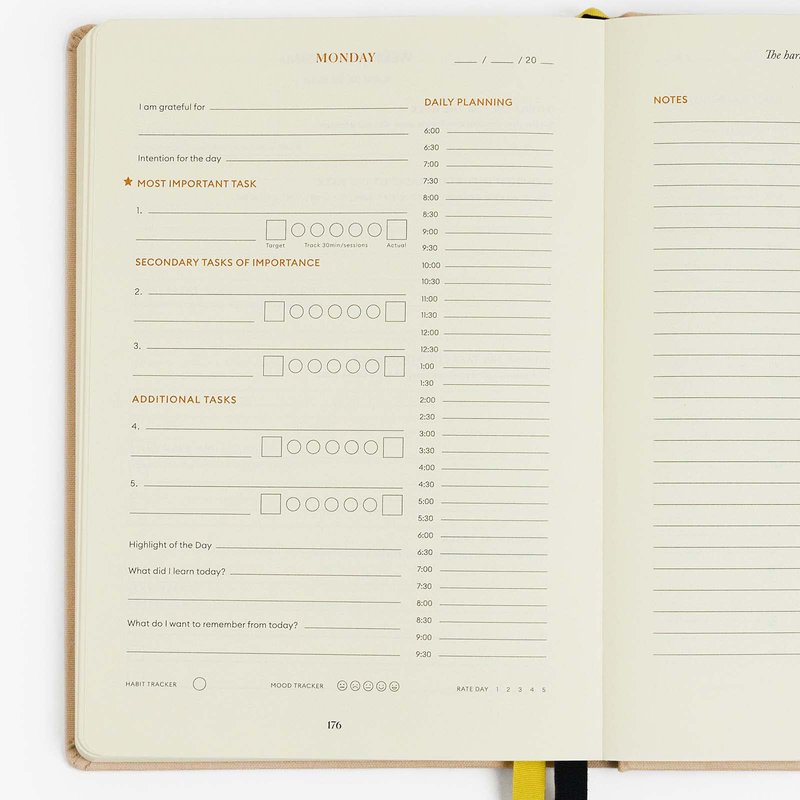 MONDAY
/ / 20
I am grateful for
Intention for the day
MOST IMPORTANT TASK
1.
Target Track 30min/sessions Actual
SECONDARY TASKS OF IMPORTANCE
2.
3.
ADDITIONAL TASKS
4.
5.
Highlight of the Day
What did I learn today?
What do I want to remember from today?
HABIT TRACKER
MOOD TRACKER
DAILY PLANNING
6:00
6:30
7:00
7:30
8:00
8:30
9:00
9:30
10:00
10:30
11:00
11:30
12:00
12:30
1:00
1:30
2:00
2:30
3:00
3:30
4:00
4:30
5:00
5:30
6:00
6:30
7:00
7:30
8:00
8:30
9:00
9:30
RATE DAY 1 2 3 4 5
176
The
NOTES